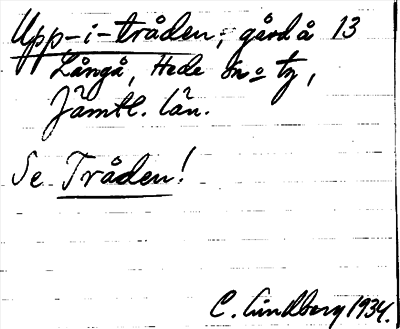 Upp-i-tråden, gård å 13
Långå, Hede sn o tg,
Jämtl. län.
Se Tråden!
C. Lundberg 1934.